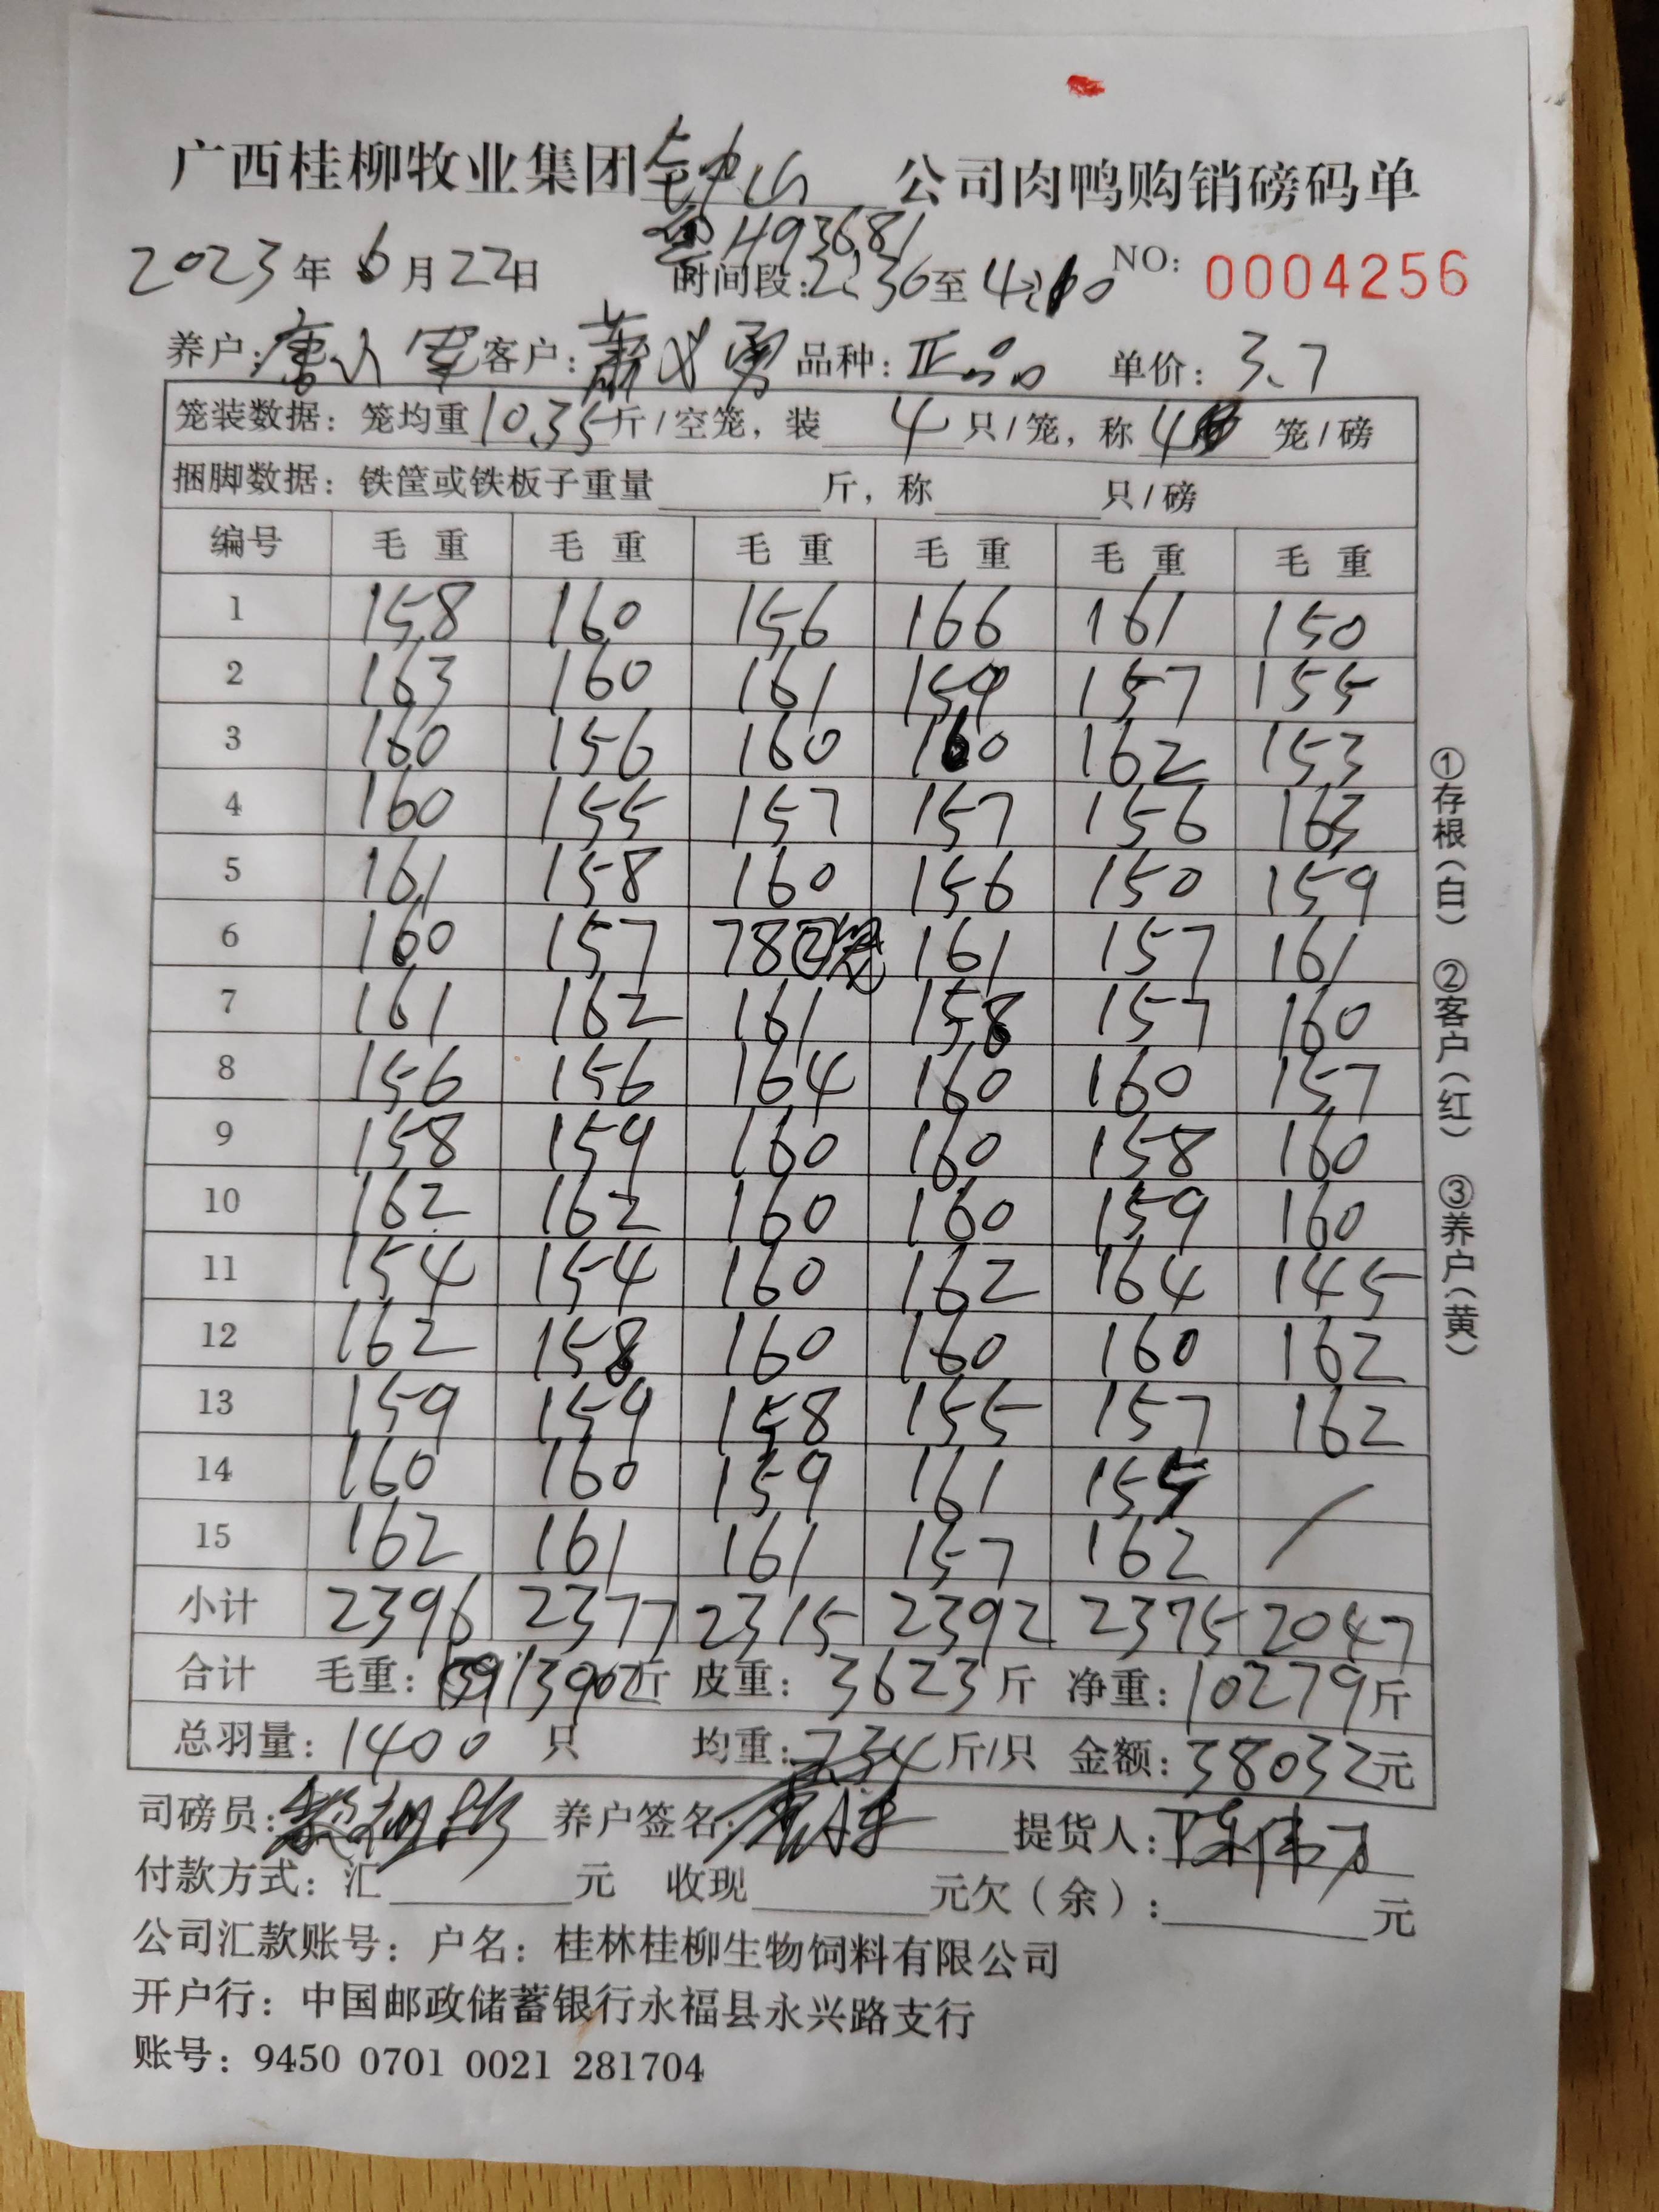 广西桂柳牧业集团钟山公司肉鸭购销磅码单
H93681
2023年6月22日 时间段:2:36至4:10 NO: 0004256
养户: 客户: 品种:正品 单价:3.7
笼装数据:笼均重10.35斤/空笼,装4只/笼,称4笼/磅
捆脚数据:铁筐或铁板子重量 斤,称 只/磅
编号 毛重 毛重 毛重 毛重 毛重 毛重
1 158 160 156 166 161 150
2 163 160 161 159 157 155
3 160 156 160 160 162 153
4 160 155 157 157 156 163
5 161 158 160 156 150 159
6 160 157 78②笼 161 157 161
7 161 162 161 158 157 160
8 156 156 164 160 160 157
9 158 159 160 160 158 160
10 162 162 160 160 159 160
11 154 154 160 162 164 145
12 162 158 160 160 160 162
13 159 159 158 155 157 162
14 160 160 159 161 155 /
15 162 161 161 157 162
小计 2396 2377 2315 2392 2375 2047
合计 毛重:13902斤 皮重:3623斤 净重:10279斤
总羽量:1400只 均重:7.34斤/只 金额:38032元
司磅员: 养户签名: 提货人:
付款方式:汇 元 收现 元欠(余): 元
公司汇款账号:户名:桂林桂柳生物饲料有限公司
开户行:中国邮政储蓄银行永福县永兴路支行
账号:9450 0701 0021 281704
①存根(白) ②客户(红) ③养户(黄)